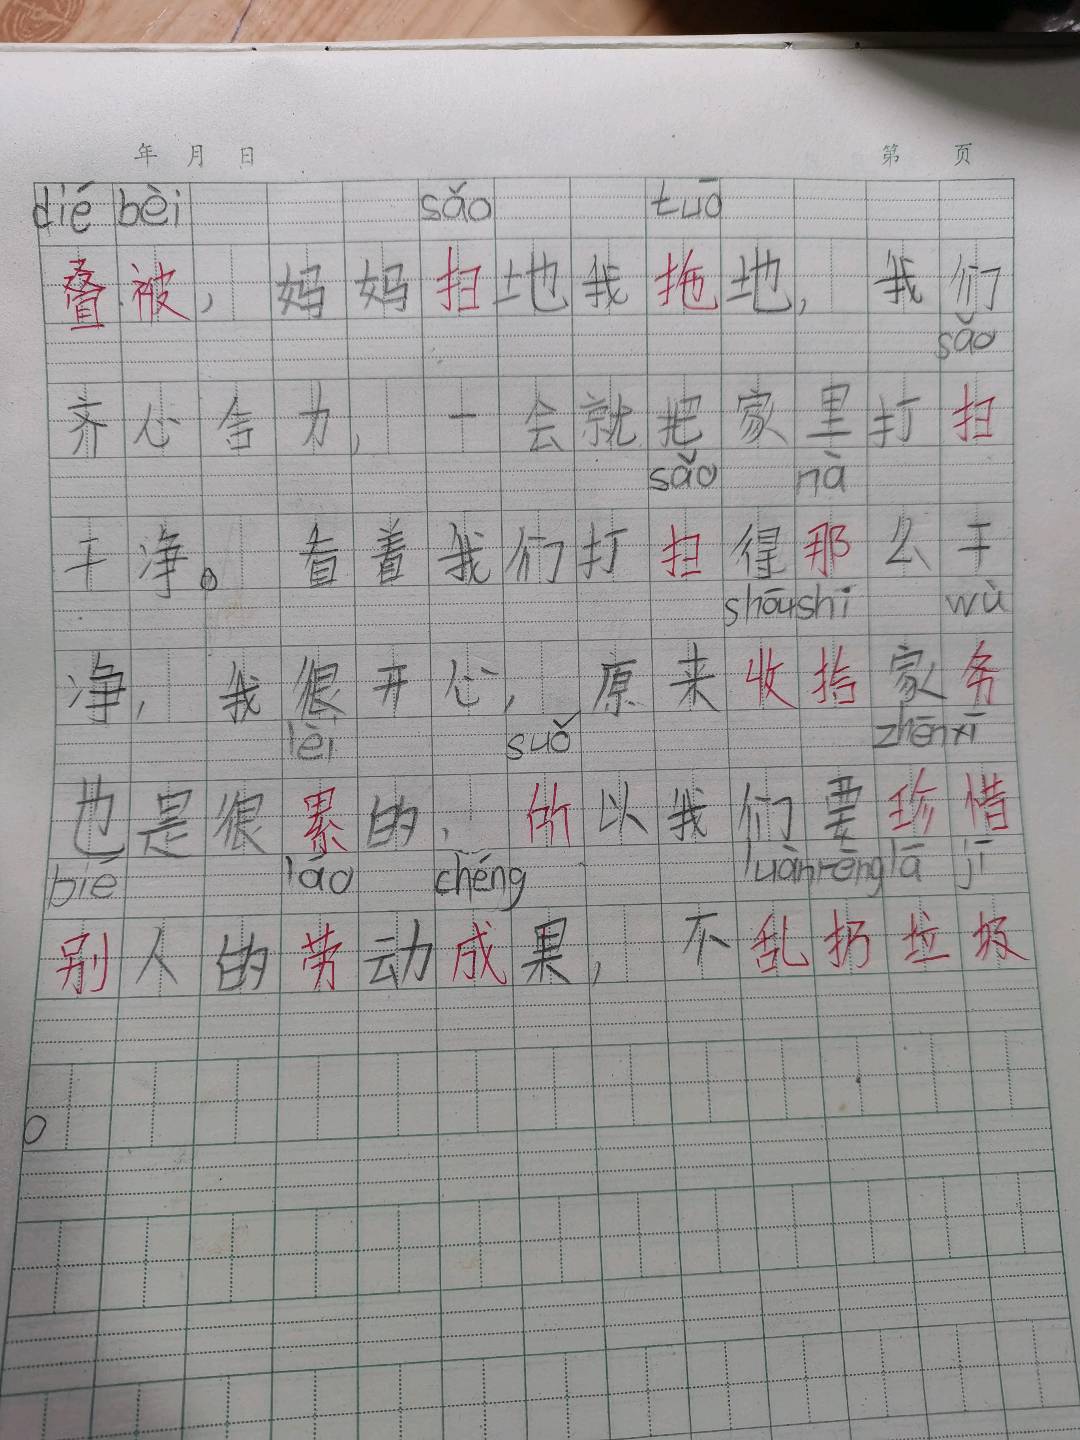 年 月 日 第 页
dié bèi sǎo tuō
叠被，妈妈扫地我拖地，我们
sǎo
齐心合力，一会就把家里打扫
sǎo nà
干净。看着我们打扫得那么干
shōu shi wù
净，我很开心，原来收拾家务
lèi suǒ zhēn xī
也是很累的，所以我们要珍惜
bié láo chéng luàn rēng lā jī
别人的劳动成果，不乱扔垃圾
。